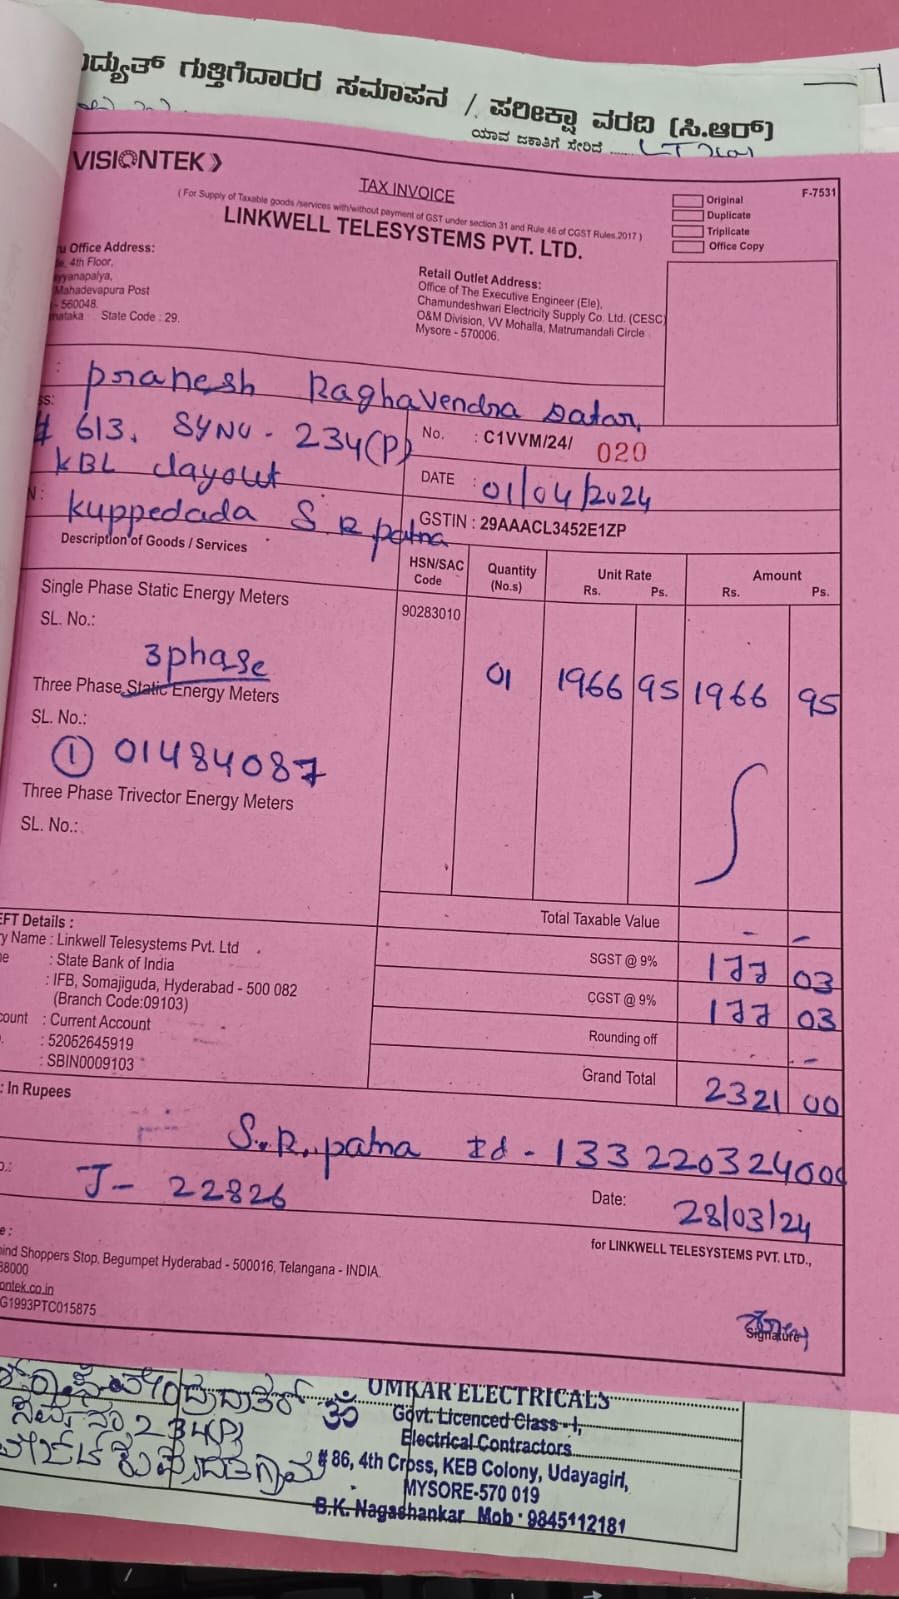 ಗುತ್ತಿಗೆದಾರರ ಸಮಾಪನ / ಪರೀಕ್ಷಾ ವರದಿ (ಸಿ.ಆರ್)
ಯಾವ ಜಕಾತಿಗೆ ಸೇರಿದೆ
VISIONTEK
F-7531
TAX INVOICE
( For Supply of Taxable goods /services with/without payment of GST under section 31 and Rule 46 of CGST Rules.2017 )
LINKWELL TELESYSTEMS PVT. LTD.
Original
Duplicate
Triplicate
Office Copy
Office Address:
4th Floor,
Mahadevapura Post
- 560048.
State Code : 29.
Retail Outlet Address:
Office of The Executive Engineer (Ele),
Chamundeshwari Electricity Supply Co. Ltd. (CESC)
O&M Division, VV Mohalla, Matrumandali Circle
Mysore - 570006.
: Pranesh Raghavendra Datar,
# 613, SYNO - 234(P)
KBL Layout
Kuppedada S R patna
No. : C1VVM/24/ 020
DATE : 01/04/2024
GSTIN : 29AAACL3452E1ZP
Description of Goods / Services
HSN/SAC Code
Quantity (No.s)
Unit Rate
Rs. Ps.
Amount
Rs. Ps.
Single Phase Static Energy Meters
90283010
SL. No.:
3 phase
01 1966 95 1966 95
Three Phase Static Energy Meters
SL. No.:
① 01484087
Three Phase Trivector Energy Meters
SL. No.:
Total Taxable Value - -
SGST @ 9% 177 03
CGST @ 9% 177 03
Rounding off -
Grand Total 2321 00
EFT Details :
Name : Linkwell Telesystems Pvt. Ltd
: State Bank of India
: IFB, Somajiguda, Hyderabad - 500 082
(Branch Code:09103)
: Current Account
: 52052645919
: SBIN0009103
: In Rupees
S.R. patna Id - 133220324000
J- 22826
Date: 28/03/24
for LINKWELL TELESYSTEMS PVT. LTD.,
Shoppers Stop, Begumpet Hyderabad - 500016, Telangana - INDIA
Signature
ॐ
OMKAR ELECTRICALS
Govt. Licenced Class - I,
Electrical Contractors
# 86, 4th Cross, KEB Colony, Udayagiri,
MYSORE-570 019
B.K. Nagashankar Mob : 9845112181